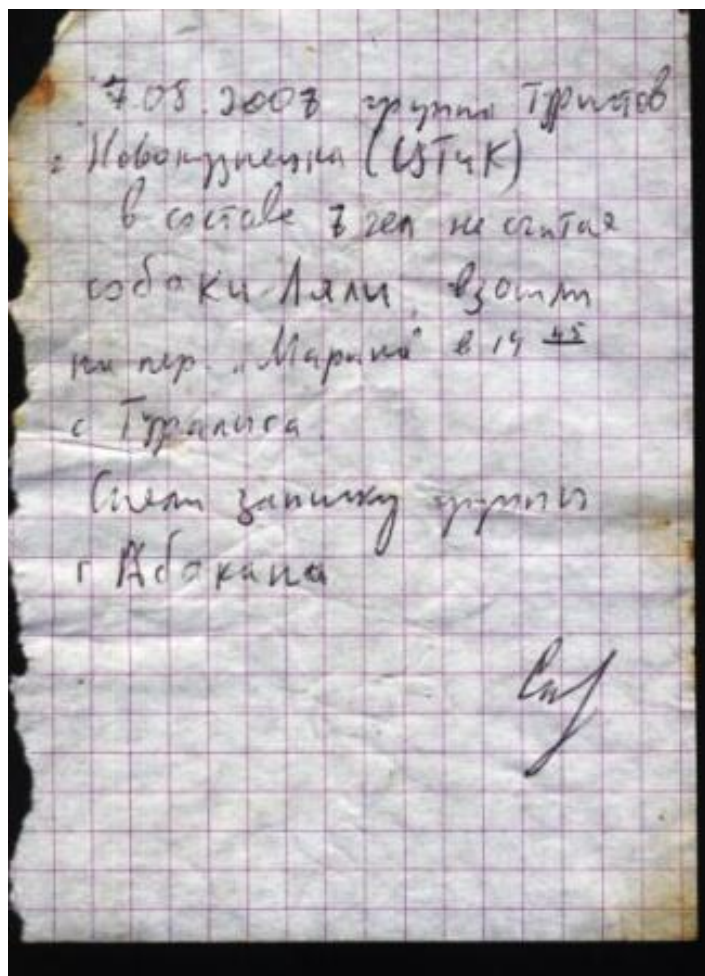 7.08.2007 группа туристов
г Новокузнецка (ЦТиК)
в составе 7 чел не считая
собаки Ляли, взошли
на пер. "Марина" в 19 45
с Туралыга.
Сняли записку группы
г Абакана